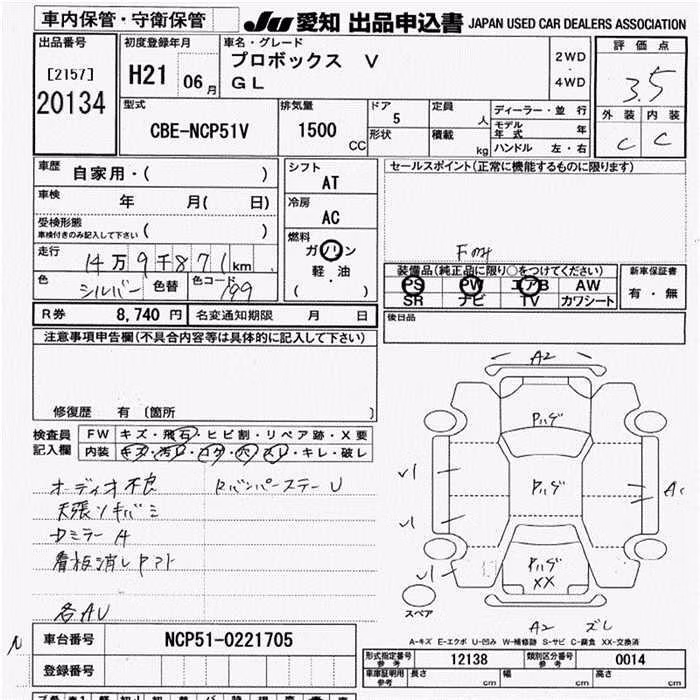 車内保管・守衛保管
JU 愛知 出品申込書 JAPAN USED CAR DEALERS ASSOCIATION
出品番号
[2157]
20134
初度登録年月
H21 06 月
車名・グレード
プロボックス V
GL
2WD
・
4WD
評価点
3.5
外装 内装
C C
型式
CBE-NCP51V
排気量
1500 CC
ドア
5
形状
定員
人
積載
kg
ディーラー・並行
モデル年式 年
ハンドル 左・右
車歴 自家用・( )
車検 年 月( 日)
受検形態
車検付きのみ記入して下さい ( )
走行 14万9千871km
色 シルバー 色替 色コード 199
シフト
AT
冷房
AC
燃料
ガソリン
軽・油
( )
セールスポイント(正常に機能するものに限ります)
装備品(純正品に限り○をつけてください)
PS PW エアB AW
SR ナビ TV カワシート
新車保証書
有・無
後日品
R券 8,740 円 名変通知期限 月 日
注意事項申告欄(不具合内容等は具体的に記入して下さい)
修復歴 有 〔箇所 〕
検査員記入欄
FW キズ・飛石・ヒビ割・リペア跡・X要
内装 キズ・汚レ・コゲ・穴・スレ・キレ・破レ
オーディオ不良
天張リキバミ
看板消しアト
各AU
A2
ハゲ
ハゲ
ハゲ
XX
A2 ズレ
スペア
A-キズ E-エクボ U-凹み W-補修跡 S-サビ C-腐食 XX-交換済
車台番号 NCP51-0221705
登録番号
型式指定番号 参考 12138 類別区分番号 参考 0014
車庫証明用 参考 長さ cm 幅 cm 高さ cm